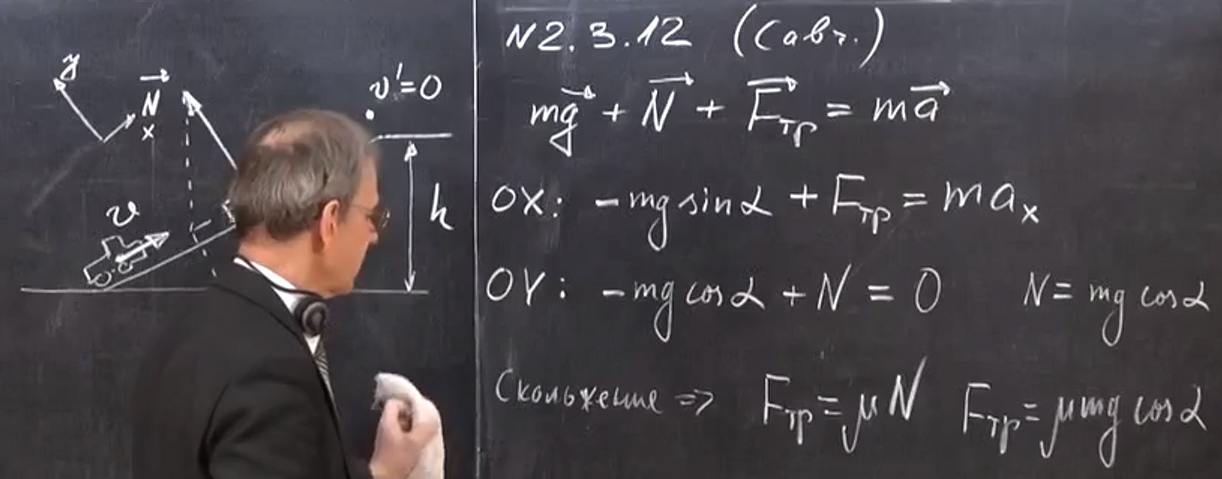 y
N⃗
x
v
v'=0
h
N2.3.12 (Савч.)
mg⃗ + N⃗ + F⃗тр = ma⃗
OX: -mg sinα + Fтр = maₓ
OY: -mg cosα + N = 0 N = mg cosα
Скольжение => Fтр = μN Fтр = μmg cosα